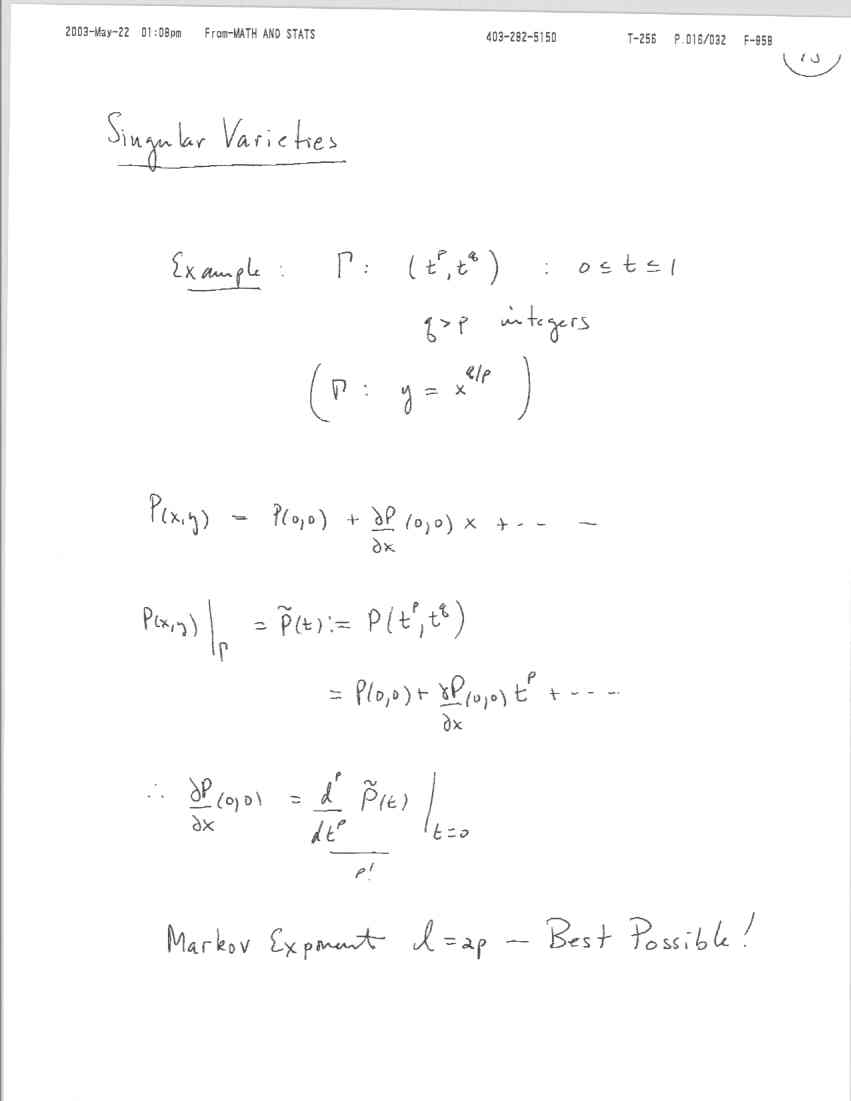 2003-May-22 01:08pm From-MATH AND STATS 403-282-5150 T-256 P.016/032 F-958
Singular Varieties
Example : Γ : (t^p, t^q) : 0 ≤ t ≤ 1
q > p integers
(Γ : y = x^{q/p})
P(x,y) = P(0,0) + ∂P/∂x (0,0) x + - - -
P(x,y)|_Γ = P̃(t) := P(t^p, t^q)
= P(0,0) + ∂P/∂x (0,0) t^p + - - - -
∴ ∂P/∂x (0,0) = d^p/dt^p P̃(t) |_{t=0}
p!
Markov Exponent l = 2p – Best Possible!